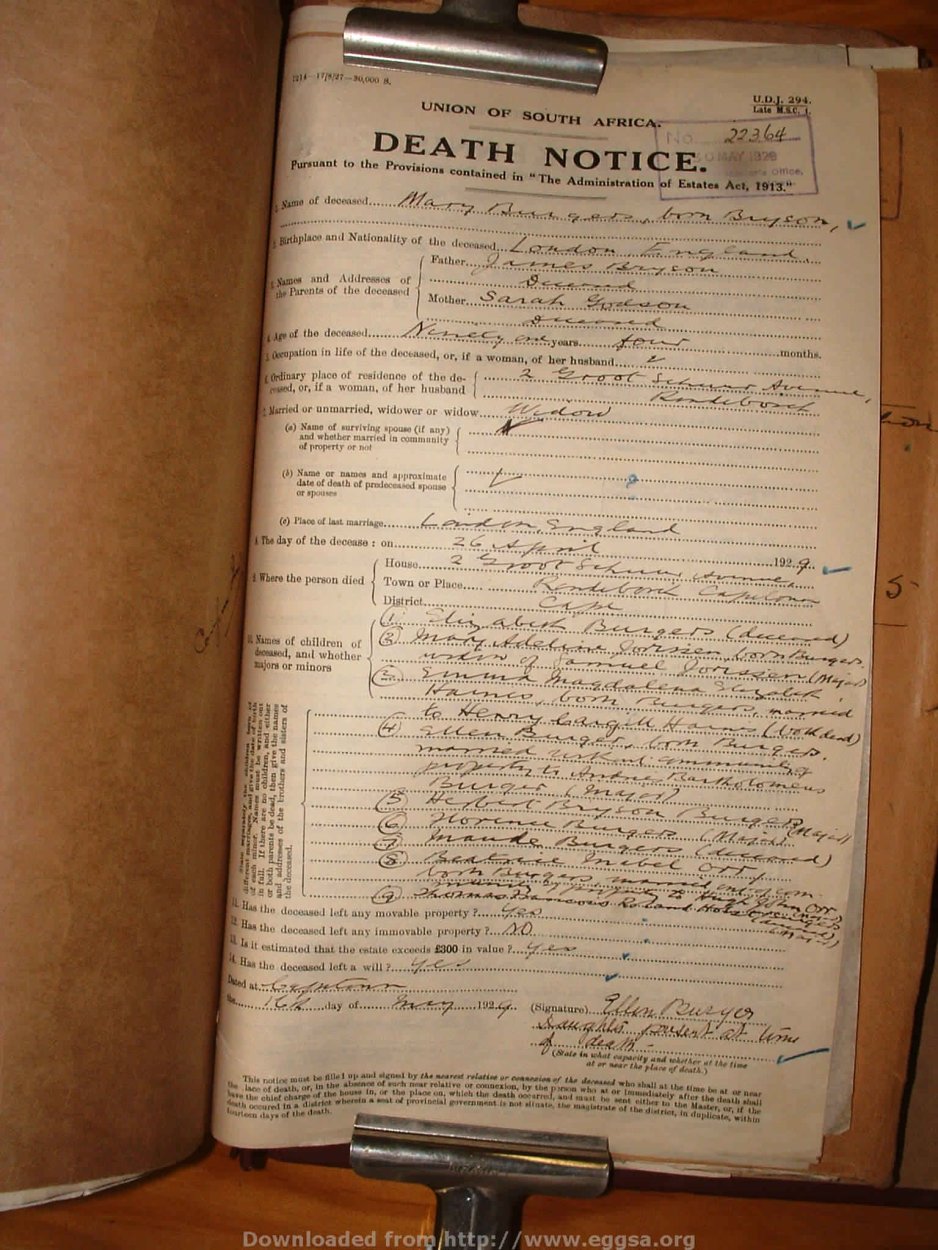 1214—17/8/27—30,000 S.
U.D.J. 294.
Late M.S.C. 1.
UNION OF SOUTH AFRICA.
No. 22364
MAY 1929
Office.
DEATH NOTICE.
Pursuant to the Provisions contained in "The Administration of Estates Act, 1913."
1. Name of deceased Mary Burgers, born Bryson,
2. Birthplace and Nationality of the deceased London England.
3. Names and Addresses of the Parents of the deceased
Father James Bryson
Deceased
Mother Sarah
deceased
4. Age of the deceased Ninety one years four months.
5. Occupation in life of the deceased, or, if a woman, of her husband
6. Ordinary place of residence of the deceased, or, if a woman, of her husband
2 Groot Schuur Avenue,
Rondebosch
7. Married or unmarried, widower or widow Widow
(a) Name of surviving spouse (if any) and whether married in community of property or not
(b) Name or names and approximate date of death of predeceased spouse or spouses
(c) Place of last marriage London England
8. The day of the decease: on 26 April 1929.
9. Where the person died
House 2 Groot Schuur Avenue,
Town or Place Rondebosch Capetown
District Cape
10. Names of children of deceased, and whether majors or minors
(1) Elizabeth Burgers (deceased)
(2) Mary Adeline Jorissen, born Burgers,
widow of Samuel Jorissen (Major)
(3) Emma Magdalena Elizabeth
Haines, born Burgers, married
to Henry Cargill Haines (both dead)
(4) Ellen Burger, born Burgers.
married without community of
property to Andrie Bartholomeus
Burger (Major)
(5) Herbert Bryson Burgers (Major)
(6) Florence Burgers (Major)
(7) Maude Burgers (deceased)
(8) Beatrice Mabel Orr,
born Burgers, married out of com
munity of property to Hugh John Orr
(9) Thomas Francois Roland
State separately the children born of different marriages, and give the date of birth of each minor. Names must be written out in full. If there are no children, and either or both parents be dead, then give the names and addresses of the brothers and sisters of the deceased.
11. Has the deceased left any movable property? Yes
12. Has the deceased left any immovable property? No
13. Is it estimated that the estate exceeds £300 in value? Yes
14. Has the deceased left a will? Yes
Dated at Capetown
the 16th day of May 1929.
(Signature) Ellen Burger
Daughter present at time
of death.
(State in what capacity and whether at the time
at or near the place of death.)
This notice must be filled up and signed by the nearest relative or connexion of the deceased who shall at the time be at or near
the place of death, or, in the absence of such near relative or connexion, by the person who at or immediately after the death shall
have the chief charge of the house in, or the place on, which the death occurred, and must be sent either to the Master, or, if the
death occurred in a district wherein a seat of provincial government is not situate, the magistrate of the district, in duplicate, within
fourteen days of the death.
5
Downloaded from http://www.eggsa.org